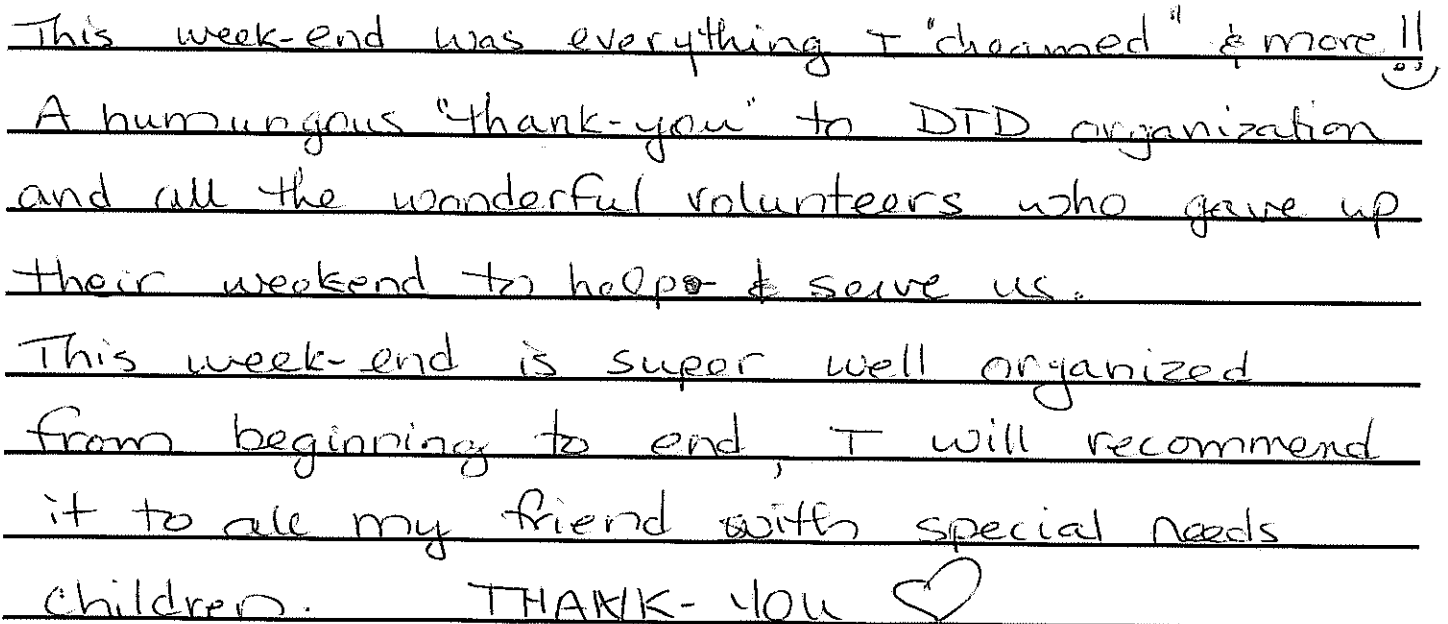 This week-end was everything I "dreamed" & more!!
A humungous "thank-you" to DTD organization
and all the wonderful volunteers who gave up
their weekend to help & serve us.
This week-end is super well organized
from beginning to end, I will recommend
it to all my friend with special needs
children. THANK-YOU